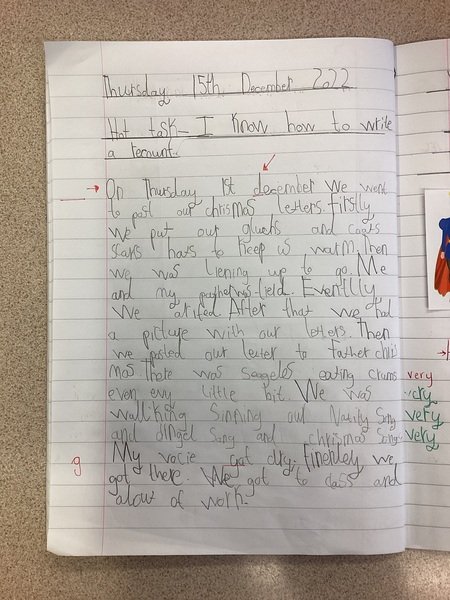 Thursday 15th December 2022
Hot task- I know how to write
a recount.
On Thursday 1st december we went
to post our chrismas letters. Firstly
we put our gluchs and coats
scars hats to keep us warm. Then
we was liening up to go. Me
and my was field. Eventlly
we arifed. After that we had
a picture with our letters. Then
we posted out leuer to Father chris
mas. There was seagelos eating crums
even evry little bit. We was
wallking sinning out Natify song
and dingel song and chrismas song.
My vocie got dry. Finerley we
got there. We got to class and
alout of work.
g
very
very
very
very